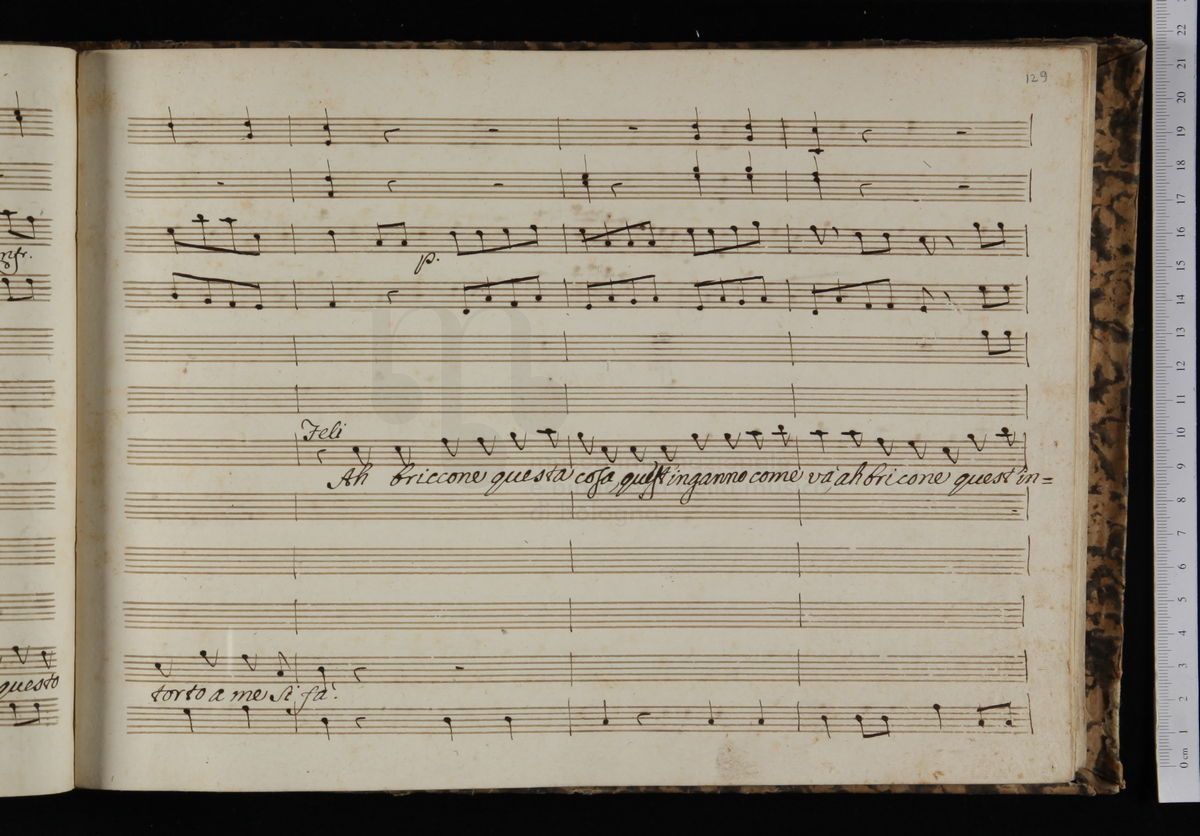 129
nfr.
p.
Feli
Ah briccone questa cosa, quest inganno come và, ah bricone quest in=
questo
torto a me si fà?
22
21
20
19
18
17
16
15
14
13
12
11
10
9
8
7
6
5
4
3
2
1
0 cm